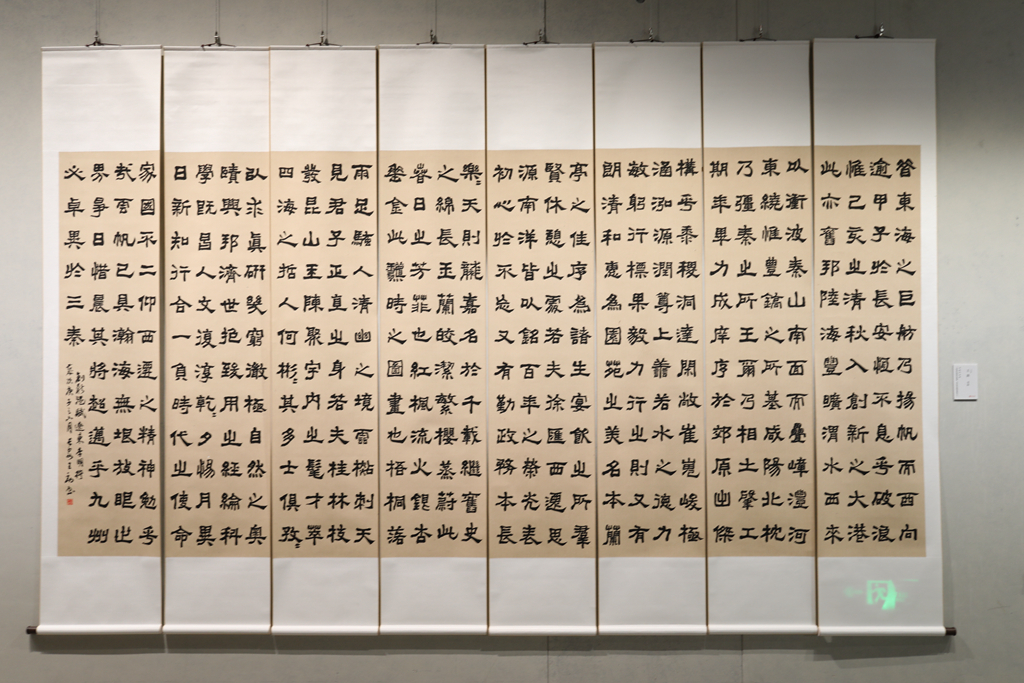 昔東海之巨舫乃揚帆而西向
逾甲子於長安恆不息乎破浪
惟己亥之清秋入創新之大港
此亦舊邦陸海豐曠渭水西來
以衝波秦山南面而疊嶂漫河
東繞惟豐鎬之所基咸陽北枕
乃疆秦之所王爾乃相土肇工
期年畢力成庠序於郊原出傑
構乎黍稷洞達閑敞崔嵬峻極
涵泓源潤尊上善若水之德力
敏躬行標果毅力行之則又有
朗清和惠為園苑之美名本蘭
亭之佳序為諸生宴飲之所羣
賢休憩之處若夫徐匯西遷思
源南洋皆以銘百年之榮光表
初心於不忘又有勤政務本長
樂天則龍嘉名於千載繼舊史
之綿長玉蘭皎潔繁櫻蓊蔚此
春日之芳菲也紅楓流火銀杏
壘金此豔時之圖畫也梧桐落
雨足人清幽之境刺天
見君子正直之身若夫桂林枝
叢昆山玉陳聚宇內之髦才萃
四海之哲人何彬彬其多士俱孜孜
以求真研幾窮徹極自然之奧
賾興邦濟世抱致用之經綸科
學既昌人文復淳乾乾夕惕月異
日新知行合一負時代之使命
家國不二仰西遷之精神勉乎
哉雲帆已具瀚海無垠放眼世
界爭日惜晨其將超邁乎九州
必卓異於三秦
創新港賦
歲次庚子